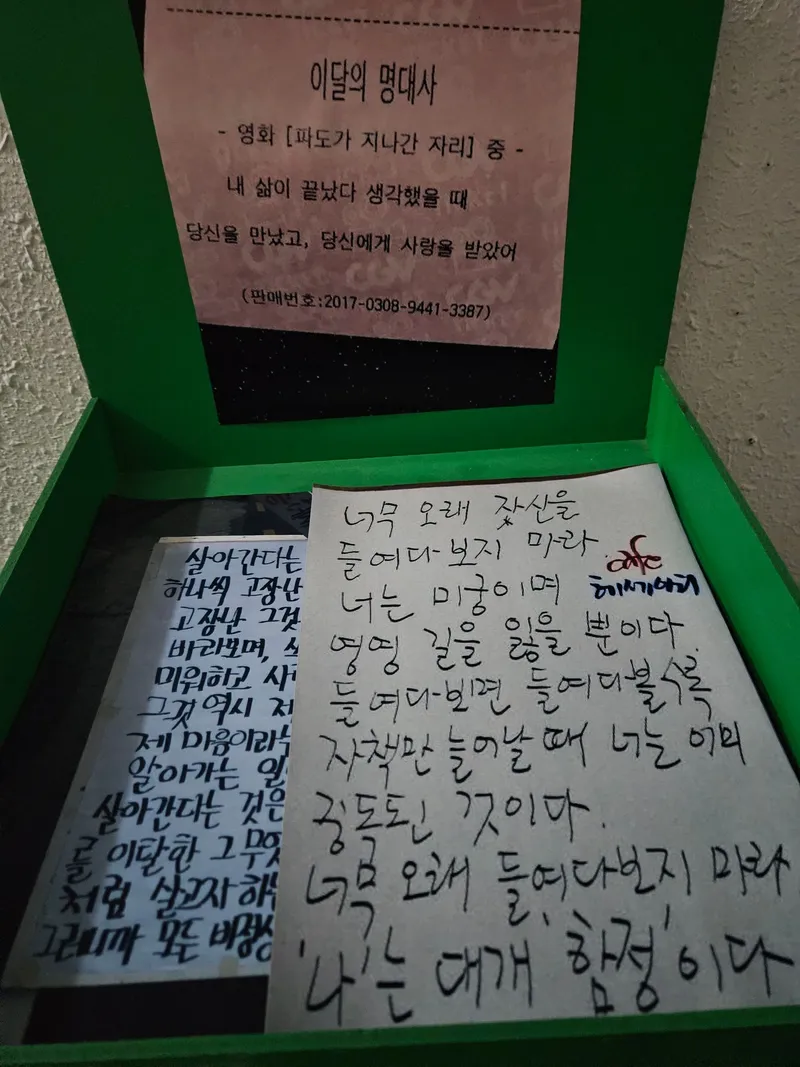 이달의 명대사
- 영화 [파도가 지나간 자리] 중 -
내 삶이 끝났다 생각했을 때
당신을 만났고, 당신에게 사랑을 받았어
(판매번호:2017-0308-9441-3387)
살아간다는
하나씩 고장난
고장난 그것
바라보며,
미워하고 사
그것 역시 제
제 마음이라
알아가는 일
살아간다는 것은
들 이달한 그 무엇
처럼 살고자 하는
그러니까 모든 비정상
너무 오래 잣신을
들여다보지 마라.
cafe
헤세기아리
너는 미궁이며
영영 길을 잃을 뿐이다.
들여다보면 들여다볼수록
자책만 늘어날 때 너는 이미
중독된 것이다.
너무 오래 들여다보지 마라
'나'는 대개 '함정'이다